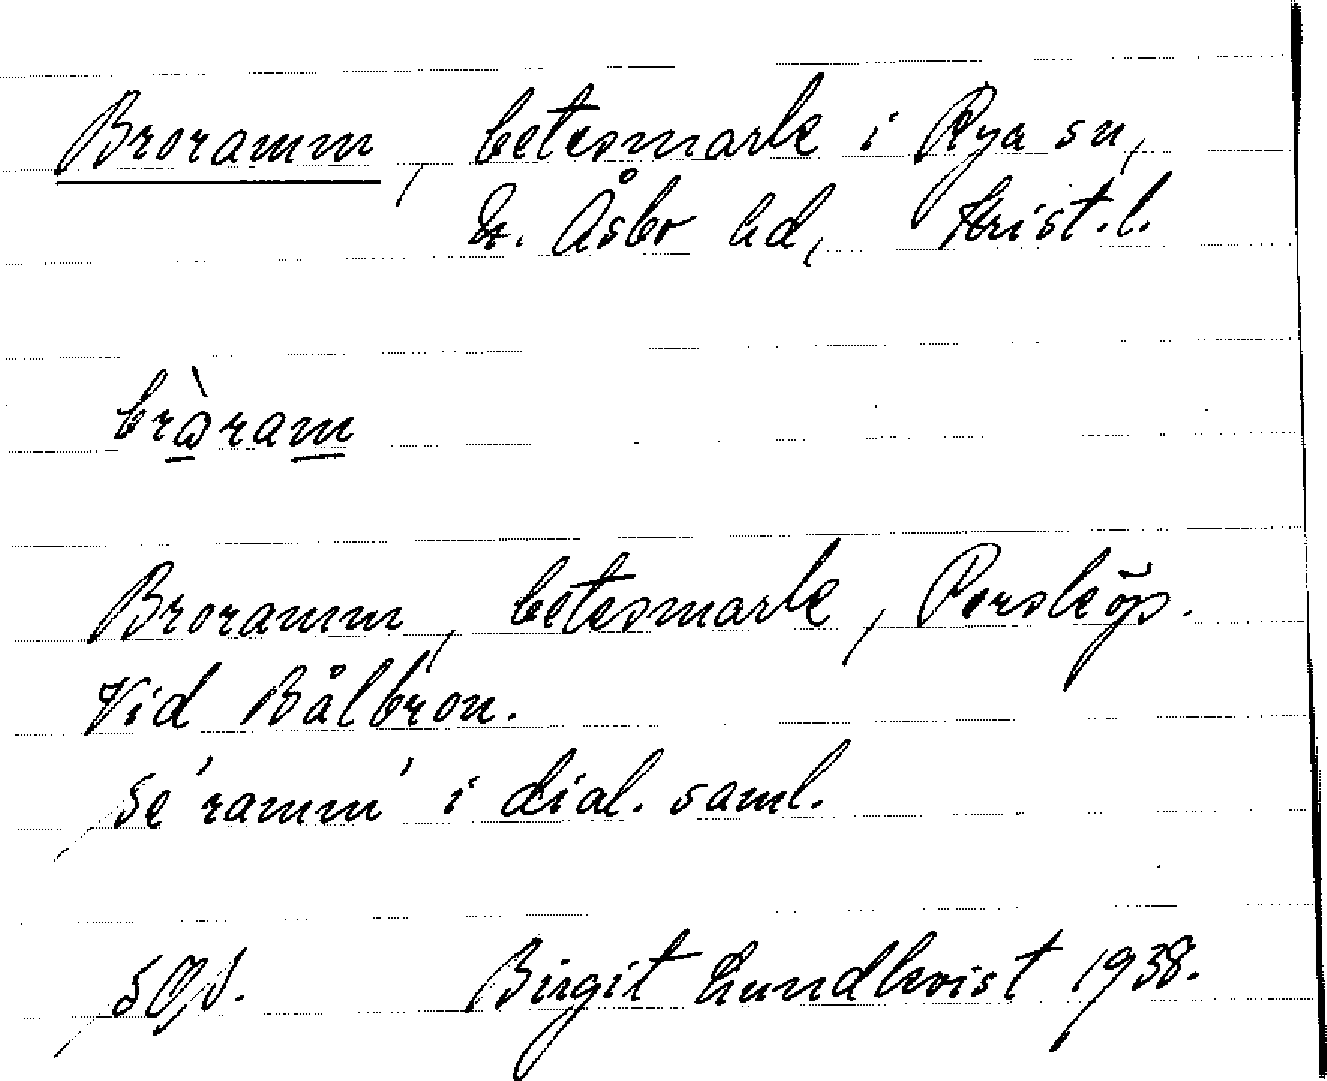 Broramm, betesmark i Rya sn,
N. Åsbo hd, Krist.l.
bròram
Broramm, betesmark, Perstöp.
Vid Bålbron.
Se 'ramm' i dial. saml.
Birgit Lundkvist 1938.